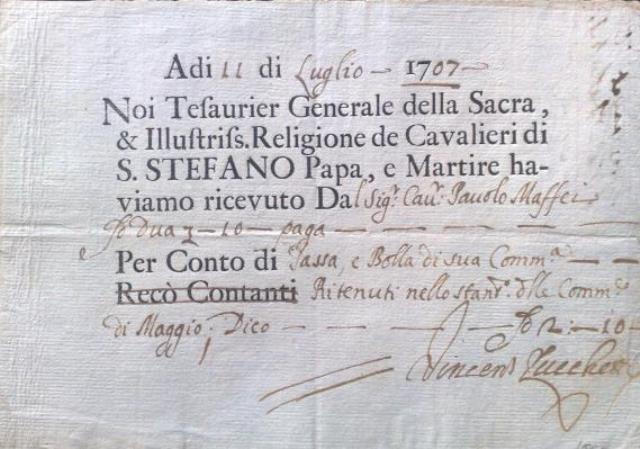 Adi 11 di Luglio — 1707 —
Noi Teſaurier Generale della Sacra,
& Illuſtriſs. Religione de Cavalieri di
S. STEFANO Papa, e Martire ha-
viamo ricevuto Dal Sig.r Cau.r Pauolo Maffei
Dua — 10 — paga — — — — — — — —
Per Conto di Tassa, e Bolla di sua Comm.a — —
Recò Contanti Ritenuti nello dlle Comm.e
di Maggio; Dico — — — — — 2: — 10
Vincens